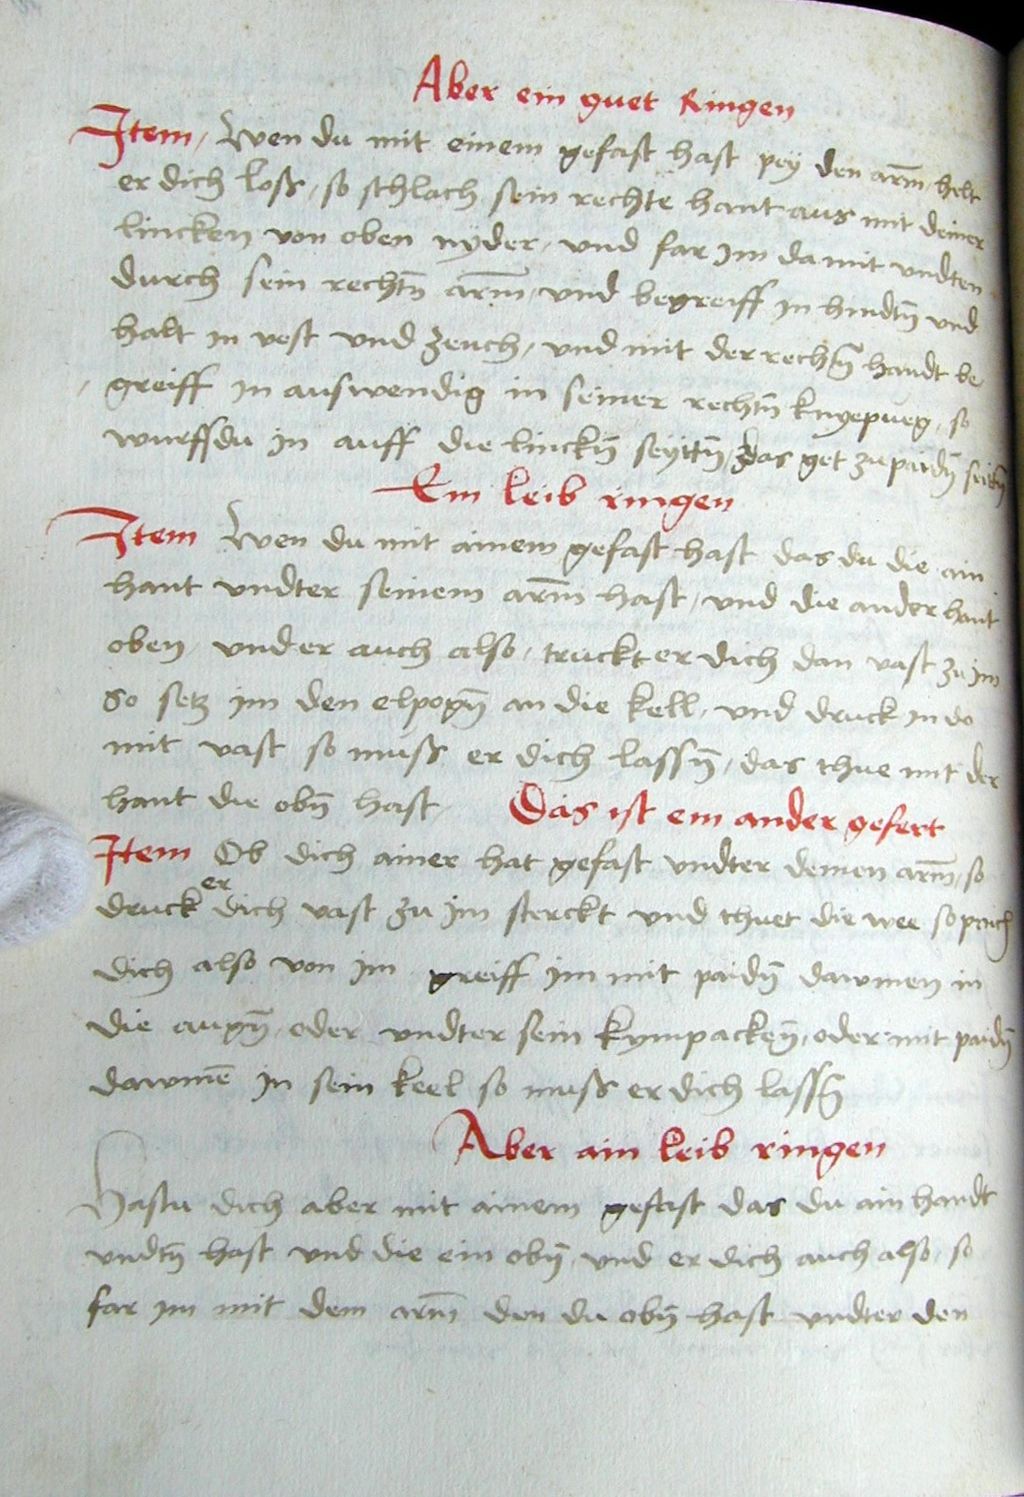 Aber ein guet Ringen
Item, Wen du mit einem gefast hast pey den arm̄, helt
er dich loss, so schlach sein rechte hant aus mit deiner
lincken von oben nyder, und far im da mit undten
durch sein rechtn̄ arm̄, und begreiff in hindtn̄ und
halt in vest und zeuch, und mit der rechtn̄ handt be
greiff in auswendig in seiner rechtn̄ knyepueg, so
wurffdu in auff die linckn̄ seyttn̄, das get zu paidn̄ seittn̄
Ein leib ringen
Item Wen du mit ainem gefast hast das du die ain
hant undter seinem arm̄ hast, und die ander hant
oben, und er auch also, truckt er dich dan vast zu im
so setz im den elpogn̄ an die kell, und druck in do
mit vast so muss er dich lassn̄, das thue mit der
hant die obn̄ hast, Das ist ein ander gefert
Item Ob dich ainer hat gefast undter deinen arm̄, so
druck er dich vast zu im sterckt und thuet die wee so prich
dich also von im greiff im mit paidn̄ dawmen in
die augn̄, oder undter sein kympackeñ, oder mit paidn̄
dawmē in sein keel so muss er dich lassn̄
Aber ain leib ringen
Hastu dich aber mit ainem gefast das du ain handt
undtn̄ hast und die ein obn̄, und er dich auch also, so
far im mit dem arm̄ den du obn̄ hast undter den